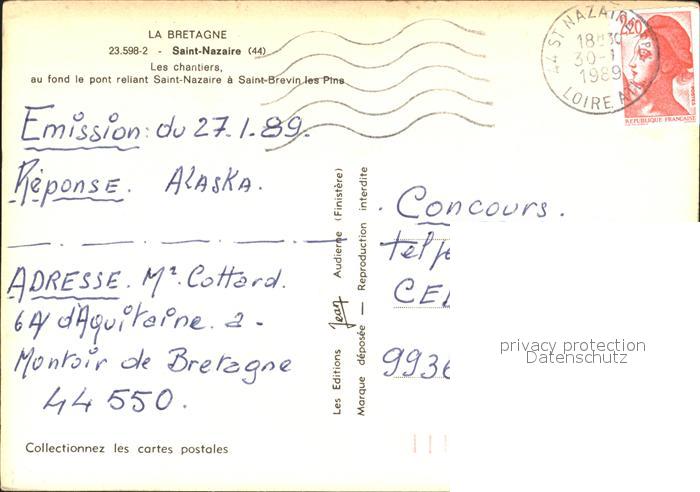 LA BRETAGNE
23.598-2 - Saint-Nazaire (44)
Les chantiers,
au fond le pont reliant Saint-Nazaire à Saint-Brevin les Pins
44 ST NAZAIRE
18H30
30-1
1989
LOIRE
2,20
POSTES
REPUBLIQUE FRANÇAISE
Emission: du 27.1.89.
Réponse. ALASKA.
ADRESSE. Mr Cottard.
d'Aquitaine. 2.
Montoir de Bretagne
44 550.
Collectionnez les cartes postales
Les Editions Jean Audierne (Finistère)
Marque déposée — Reproduction interdite
Concours.
privacy protection
Datenschutz